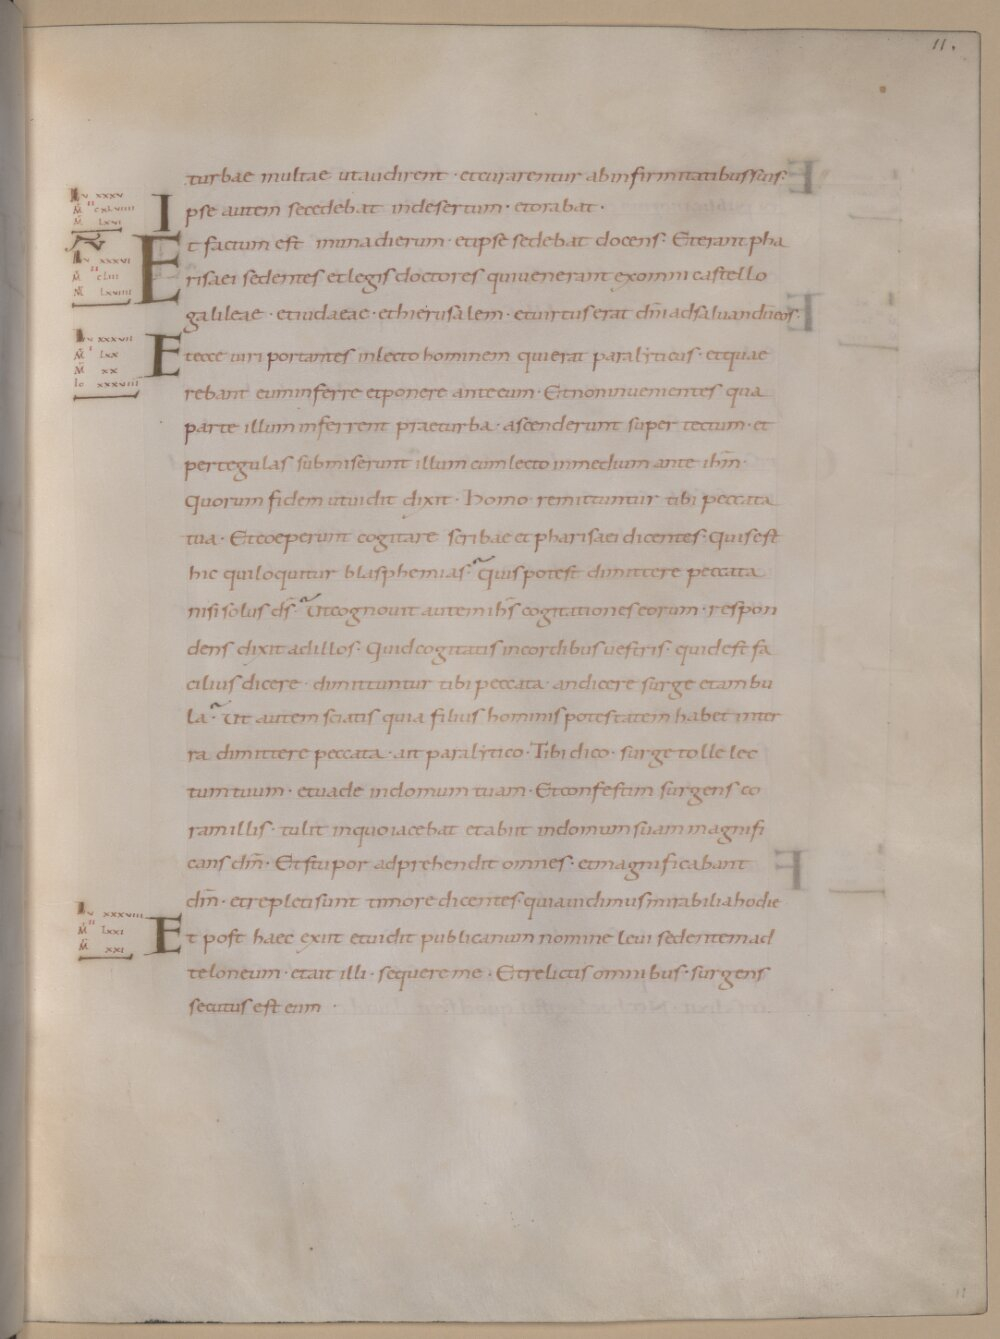 11.
turbae multae utaudirent · etcurarentur abinfirmitatibussuis·
Ipse autem secedebat indesertum · etorabat ·
Et factum est inuna dierum · etipse sedebat docens · Eterant pha
risaei sedentes etlegis doctores quiuenerant exomni castello
galileae · etiudaeae · ethierusalem · etuirtus erat dn̄i adsaluandū eos·
Etecce uiri portantes inlecto hominem quierat paralyticus · etquae
rebant euminferre etponere ante eum · Etnoninuenientes qua
parte illum inferrent praeturba · ascenderunt super tectum · et
per tegulas submiserunt illum cumlecto inmedium ante ih̄m ·
Quorum fidem utuidit dixit · Homo remittuntur tibi peccata
tua · Etcoeperunt cogitare scribae et pharisaei dicentes · Quisest
hic quiloquitur blasphemias · Quispotest dimittere peccata
nisi solus ds̄ · Utcognouit autem ih̄s cogitationes eorum · respon
dens dixit adillos · Quidcogitatis incordibus uestris · quidest fa
cilius dicere · dimittuntur tibi peccata · andicere surge etambu
la · Ut autem sciatis quia filius hominis potestatem habet inter
ra dimittere peccata · ait paralytico · Tibi dico · surge tolle lec
tumtuum · etuade indomum tuam · Etconfestim surgens co
ramillis · tulit inquoiacebat etabiit indomum suam magnifi
cans dm̄ · Etstupor adprehendit omnes · etmagnificabant
dm̄ · etrepletisunt timore dicentes · quiauidimusmirabiliahodie
Et post haec exiit etuidit publicanum nomine leui sedentemad
teloneum · etait illi · sequere me · Etrelictis omnibus · surgens
secutus est eum ·
Lu xxxv
M̄ II cxlviiii
M̄ lxvi
Lu xxxvi
M̄ II cliii
M̄ lxviiii
Lu xxxvii
M̄ I lxx
M̄ xx
Io xxxviii
Lu xxxviii
M̄ II lxxi
M̄ xxi
11